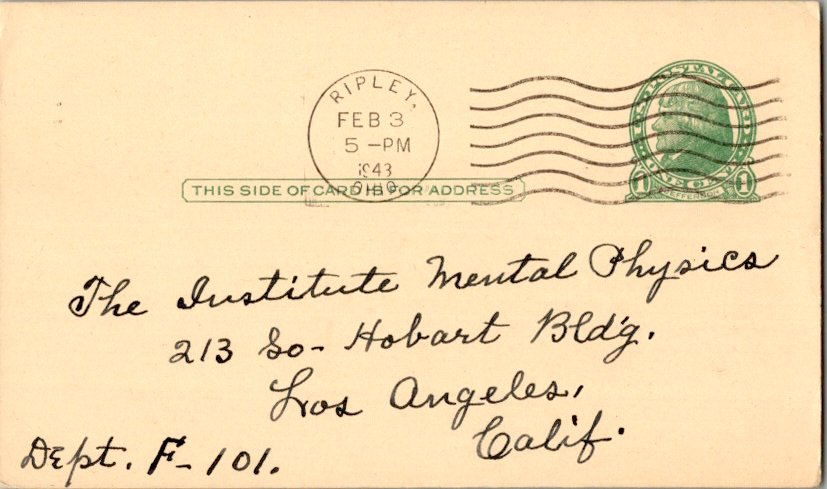 RIPLEY,
FEB 3
5 -PM
1943
OHIO
U.S. POSTAL CARD
ONE CENT
1 JEFFERSON 1
THIS SIDE OF CARD IS FOR ADDRESS
The Institute Mental Physics
213 So- Hobart Bldg.
Los Angeles,
Calif.
Dept. F-101.